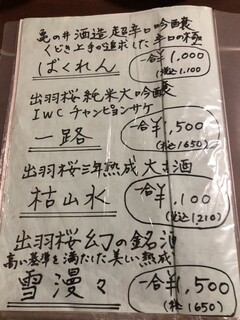 亀の井酒造超辛口吟醸
くどき上手の追求した辛口の極
ばくれん
一合¥1,000
(税込1,100
出羽桜純米大吟醸
IWCチャンピョンサケ
一路
一合¥1,500
(税込1650)
出羽桜三年熟成大古酒
枯山水
一合¥1,100
(税込1210)
出羽桜幻の銘酒
高い基準を満たした美しい熟成
雪漫々
一合¥1,500
(税込1650)